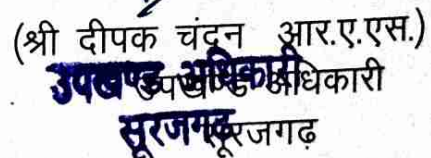 (श्री दीपक चंदन आर.ए.एस.)
उपखण्ड अधिकारी
उपखण्ड अधिकारी
सूरजगढ़
सूरजगढ़